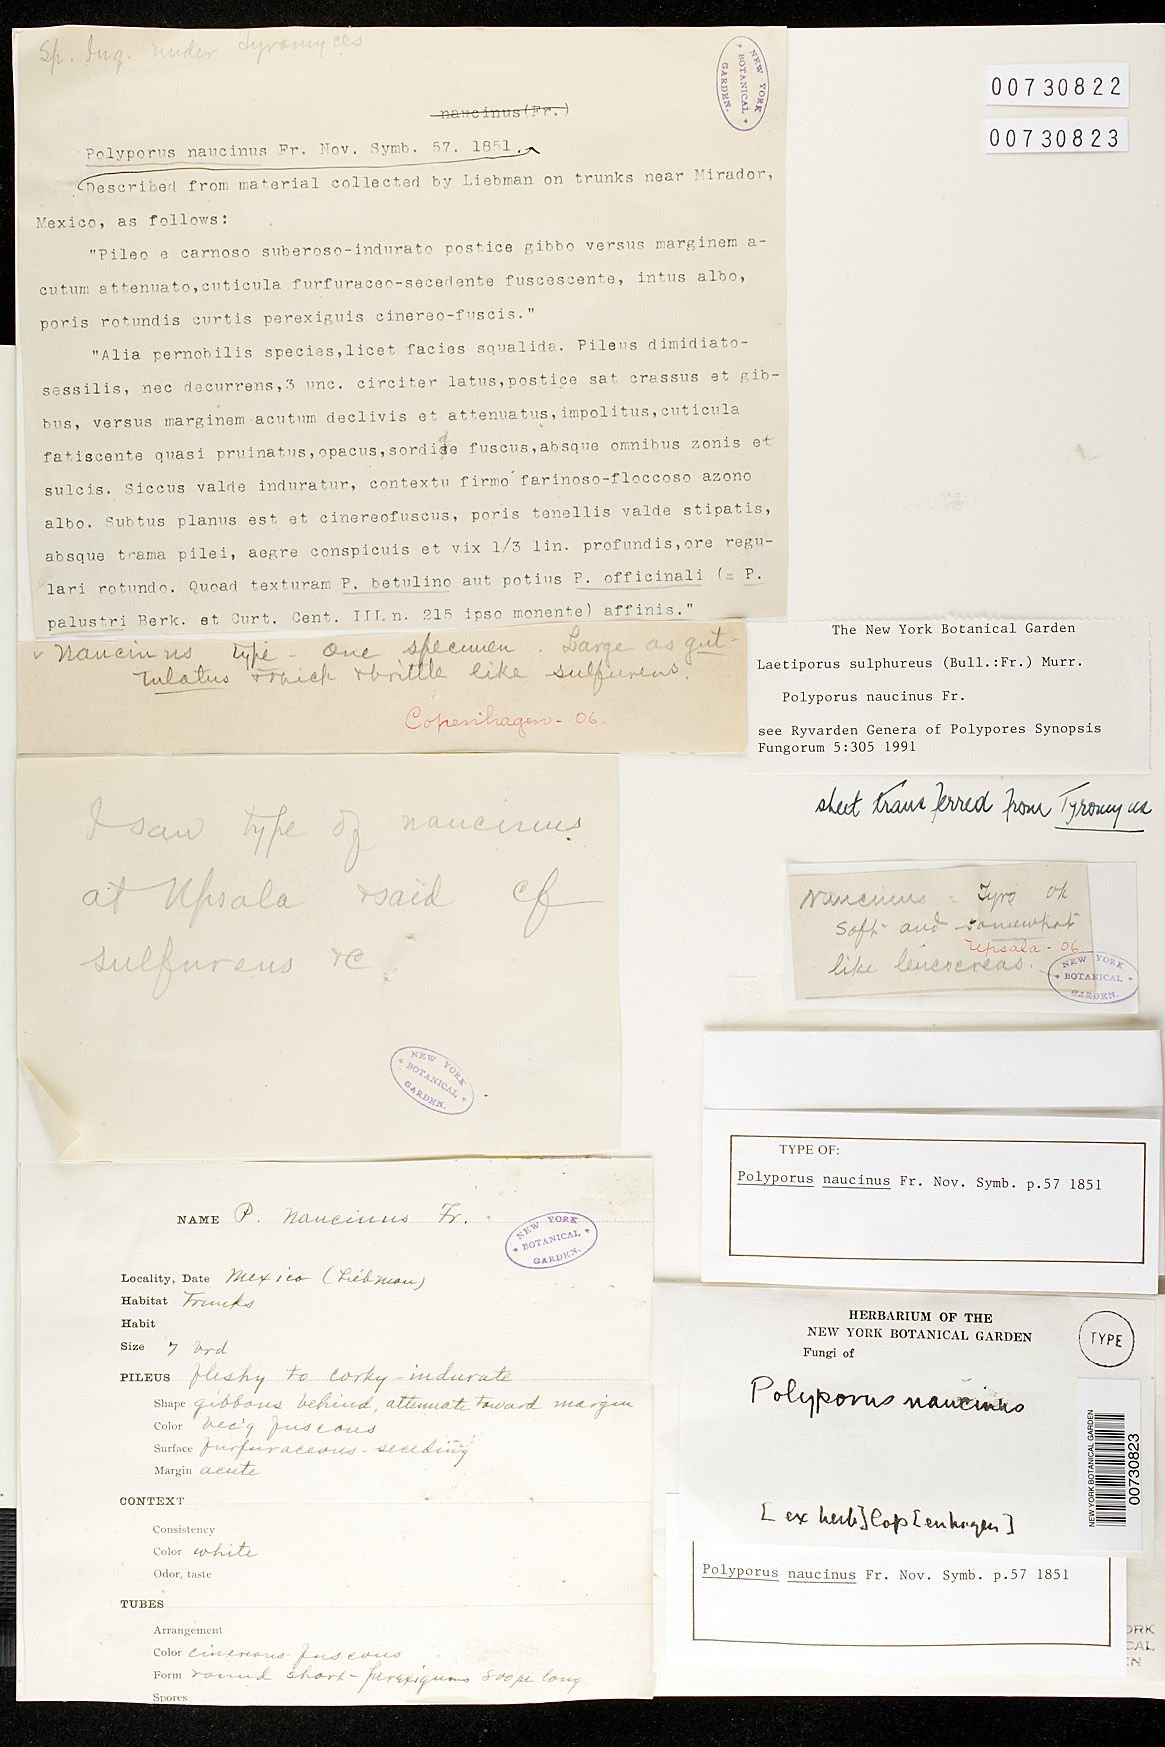 Sp. Inq. under Tyromyces
NEW YORK
BOTANICAL
GARDEN.
00730822
00730823
naucinus(Fr.)
Polyporus naucinus Fr. Nov. Symb. 57. 1851.
Described from material collected by Liebman on trunks near Mirador,
Mexico, as follows:
"Pileo e carnoso suberoso-indurato postice gibbo versus marginem a-
cutum attenuato,cuticula furfuraceo-secedente fuscescente, intus albo,
poris rotundis curtis perexiguis cinereo-fuscis."
"Alia pernobilis species,licet facies squalida. Pileus dimidiato-
sessilis, nec decurrens,3 unc. circiter latus,postice sat crassus et gib-
bus, versus marginem acutum declivis et attenuatus,impolitus,cuticula
fatiscente quasi pruinatus,opacus,sordide fuscus,absque omnibus zonis et
sulcis. Siccus valde induratur, contextu firmo farinoso-floccoso azono
albo. Subtus planus est et cinereofuscus, poris tenellis valde stipatis,
absque trama pilei, aegre conspicuis et vix 1/3 lin. profundis,ore regu-
lari rotundo. Quoad texturam P. betulino aut potius P. officinali (= P.
palustri Berk. et Curt. Cent. III. n. 215 ipso monente) affinis."
naucinus type - one specimen. Large as gut-
tulatus & thick & brittle like sulfureus.
Copenhagen - 06.
The New York Botanical Garden
Laetiporus sulphureus (Bull.:Fr.) Murr.
Polyporus naucinus Fr.
see Ryvarden Genera of Polypores Synopsis
Fungorum 5:305 1991
sheet transferred from Tyromyces
I saw type of naucinus
at Upsala & said cf
sulfureus &c
NEW YORK
BOTANICAL
GARDEN.
naucinus = Tyro ok
soft and somewhat
Upsala - 06
like leucocreas.
NEW YORK
BOTANICAL
GARDEN.
TYPE OF:
Polyporus naucinus Fr. Nov. Symb. p.57 1851
NAME P. naucinus Fr.
NEW YORK
BOTANICAL
GARDEN.
Locality, Date Mexico (Liebman)
Habitat Trunks
Habit
Size 7 brd
PILEUS fleshy to corky-indurate
Shape gibbous behind, attenuate toward margin
Color bec'g fuscous
Surface furfuraceous-seceding
Margin acute
CONTEXT
Consistency
Color white
Odor, taste
TUBES
Arrangement
Color cinereous-fuscous
Form round short-perexiguus 800µ long
Spores
HERBARIUM OF THE
NEW YORK BOTANICAL GARDEN
Fungi of
TYPE
Polyporus naucinus
[ex herb] Cop[enhagen]
NEW YORK BOTANICAL GARDEN
00730823
Polyporus naucinus Fr. Nov. Symb. p.57 1851
ORK
CAL
EN